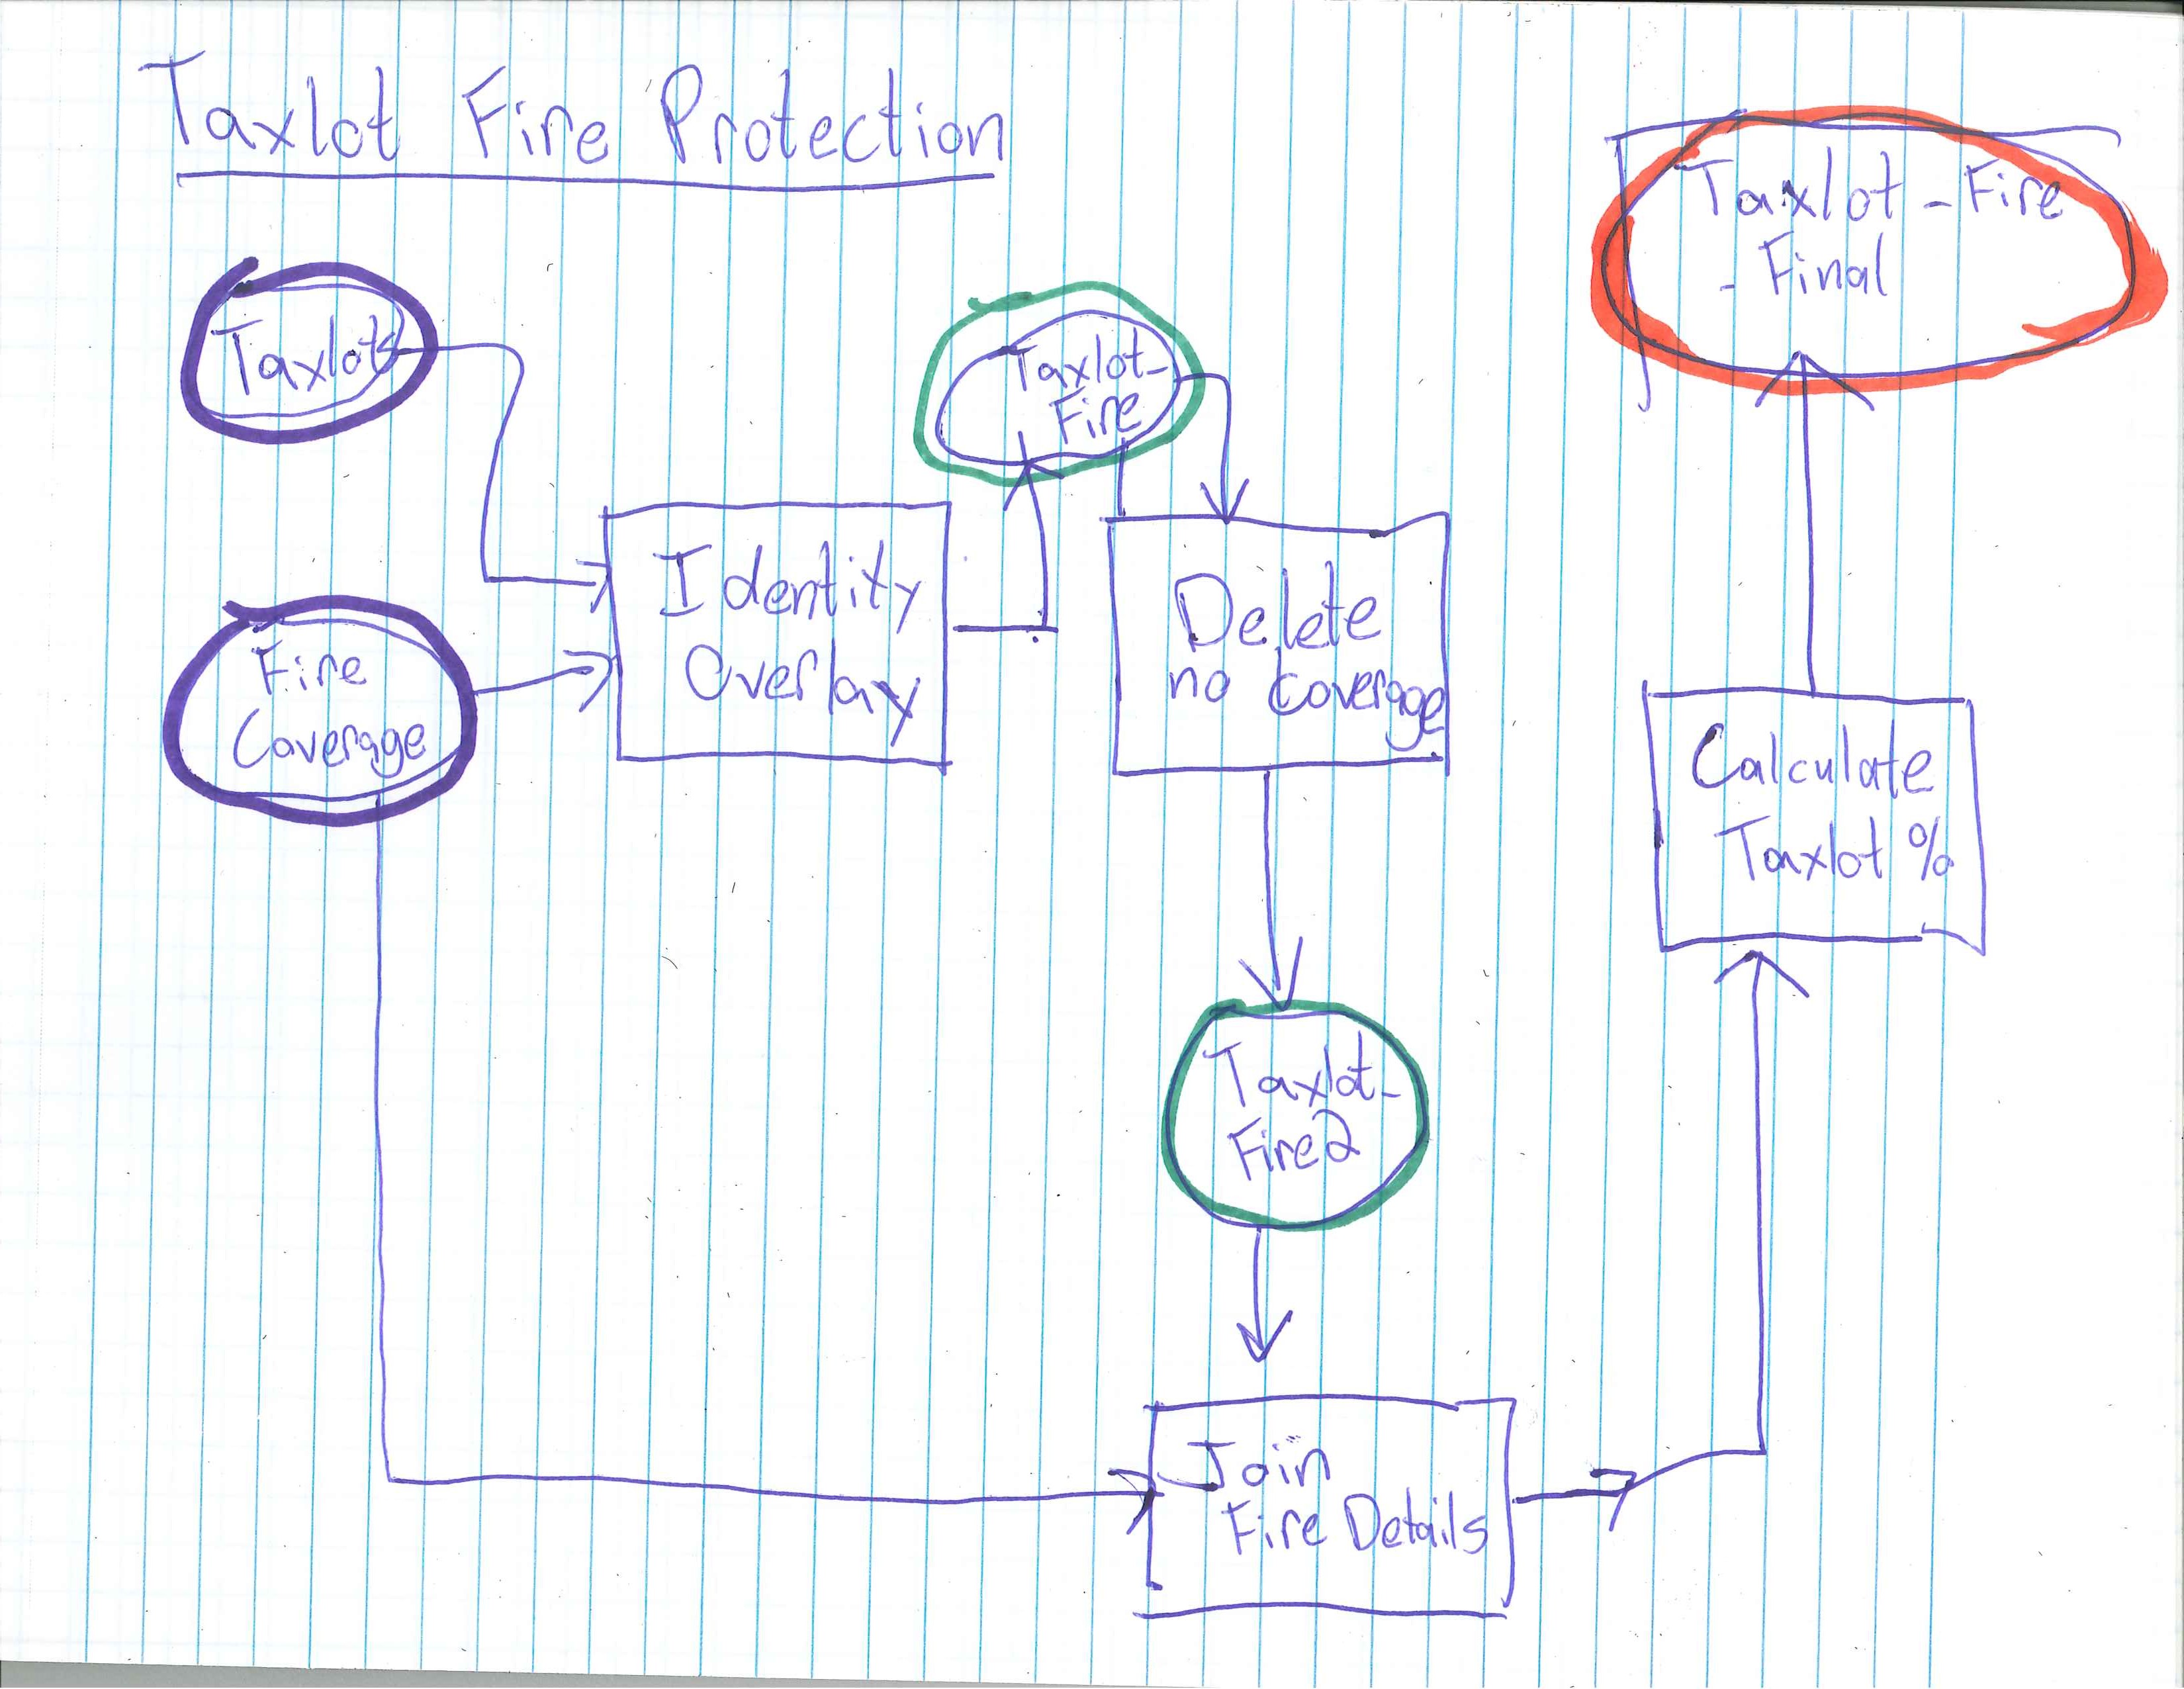 Taxlot Fire Protection
Taxlots
Fire
Coverage
Identity
Overlay
Taxlot-
Fire
Delete
no coverage
Taxlot-
Fire2
Join
Fire Details
Calculate
Taxlot %
Taxlot-Fire
-Final